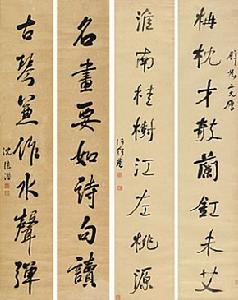 梅枕才欹蘭釭未艾
淮南桂樹江左桃源
名畫要如詩句讀
古琴兼作水聲彈
沈德潛